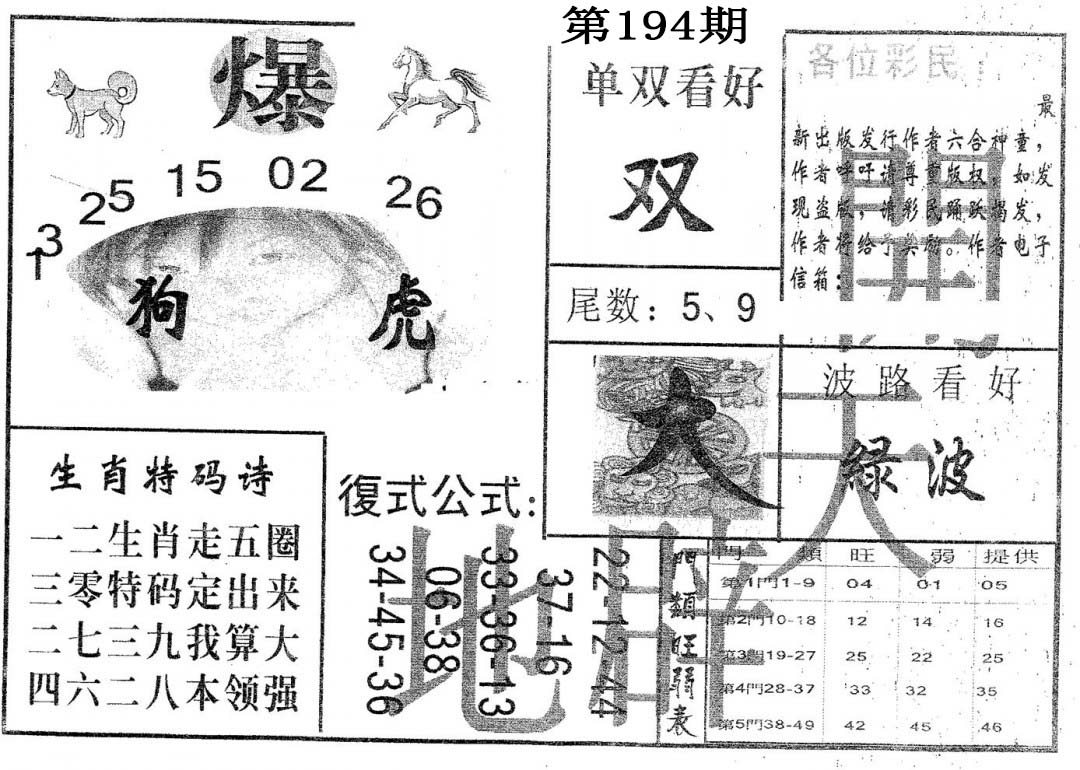 第194期
爆
13
25
15
02
26
狗
虎
生肖特码诗
一二生肖走五圈
三零特码定出来
二七三九我算大
四六二八本领强
復式公式:
34-45-36
06-38
33-36-13
37-16
22-12-44
单双看好
双
尾数：5、9
大
各位彩民：
最
新出版发行作者六合神童，
作者呼吁请尊重版权，如发
现盗版，请彩民踊跃揭发，
作者将给予奖励。作者电子
信箱：
波路看好
綠波
門類旺弱表
門 類 旺 弱 提供
第1門1-9 04 01 05
第2門10-18 12 14 16
第3門19-27 25 22 25
第4門28-37 33 32 35
第5門38-49 42 45 46
開
天
地